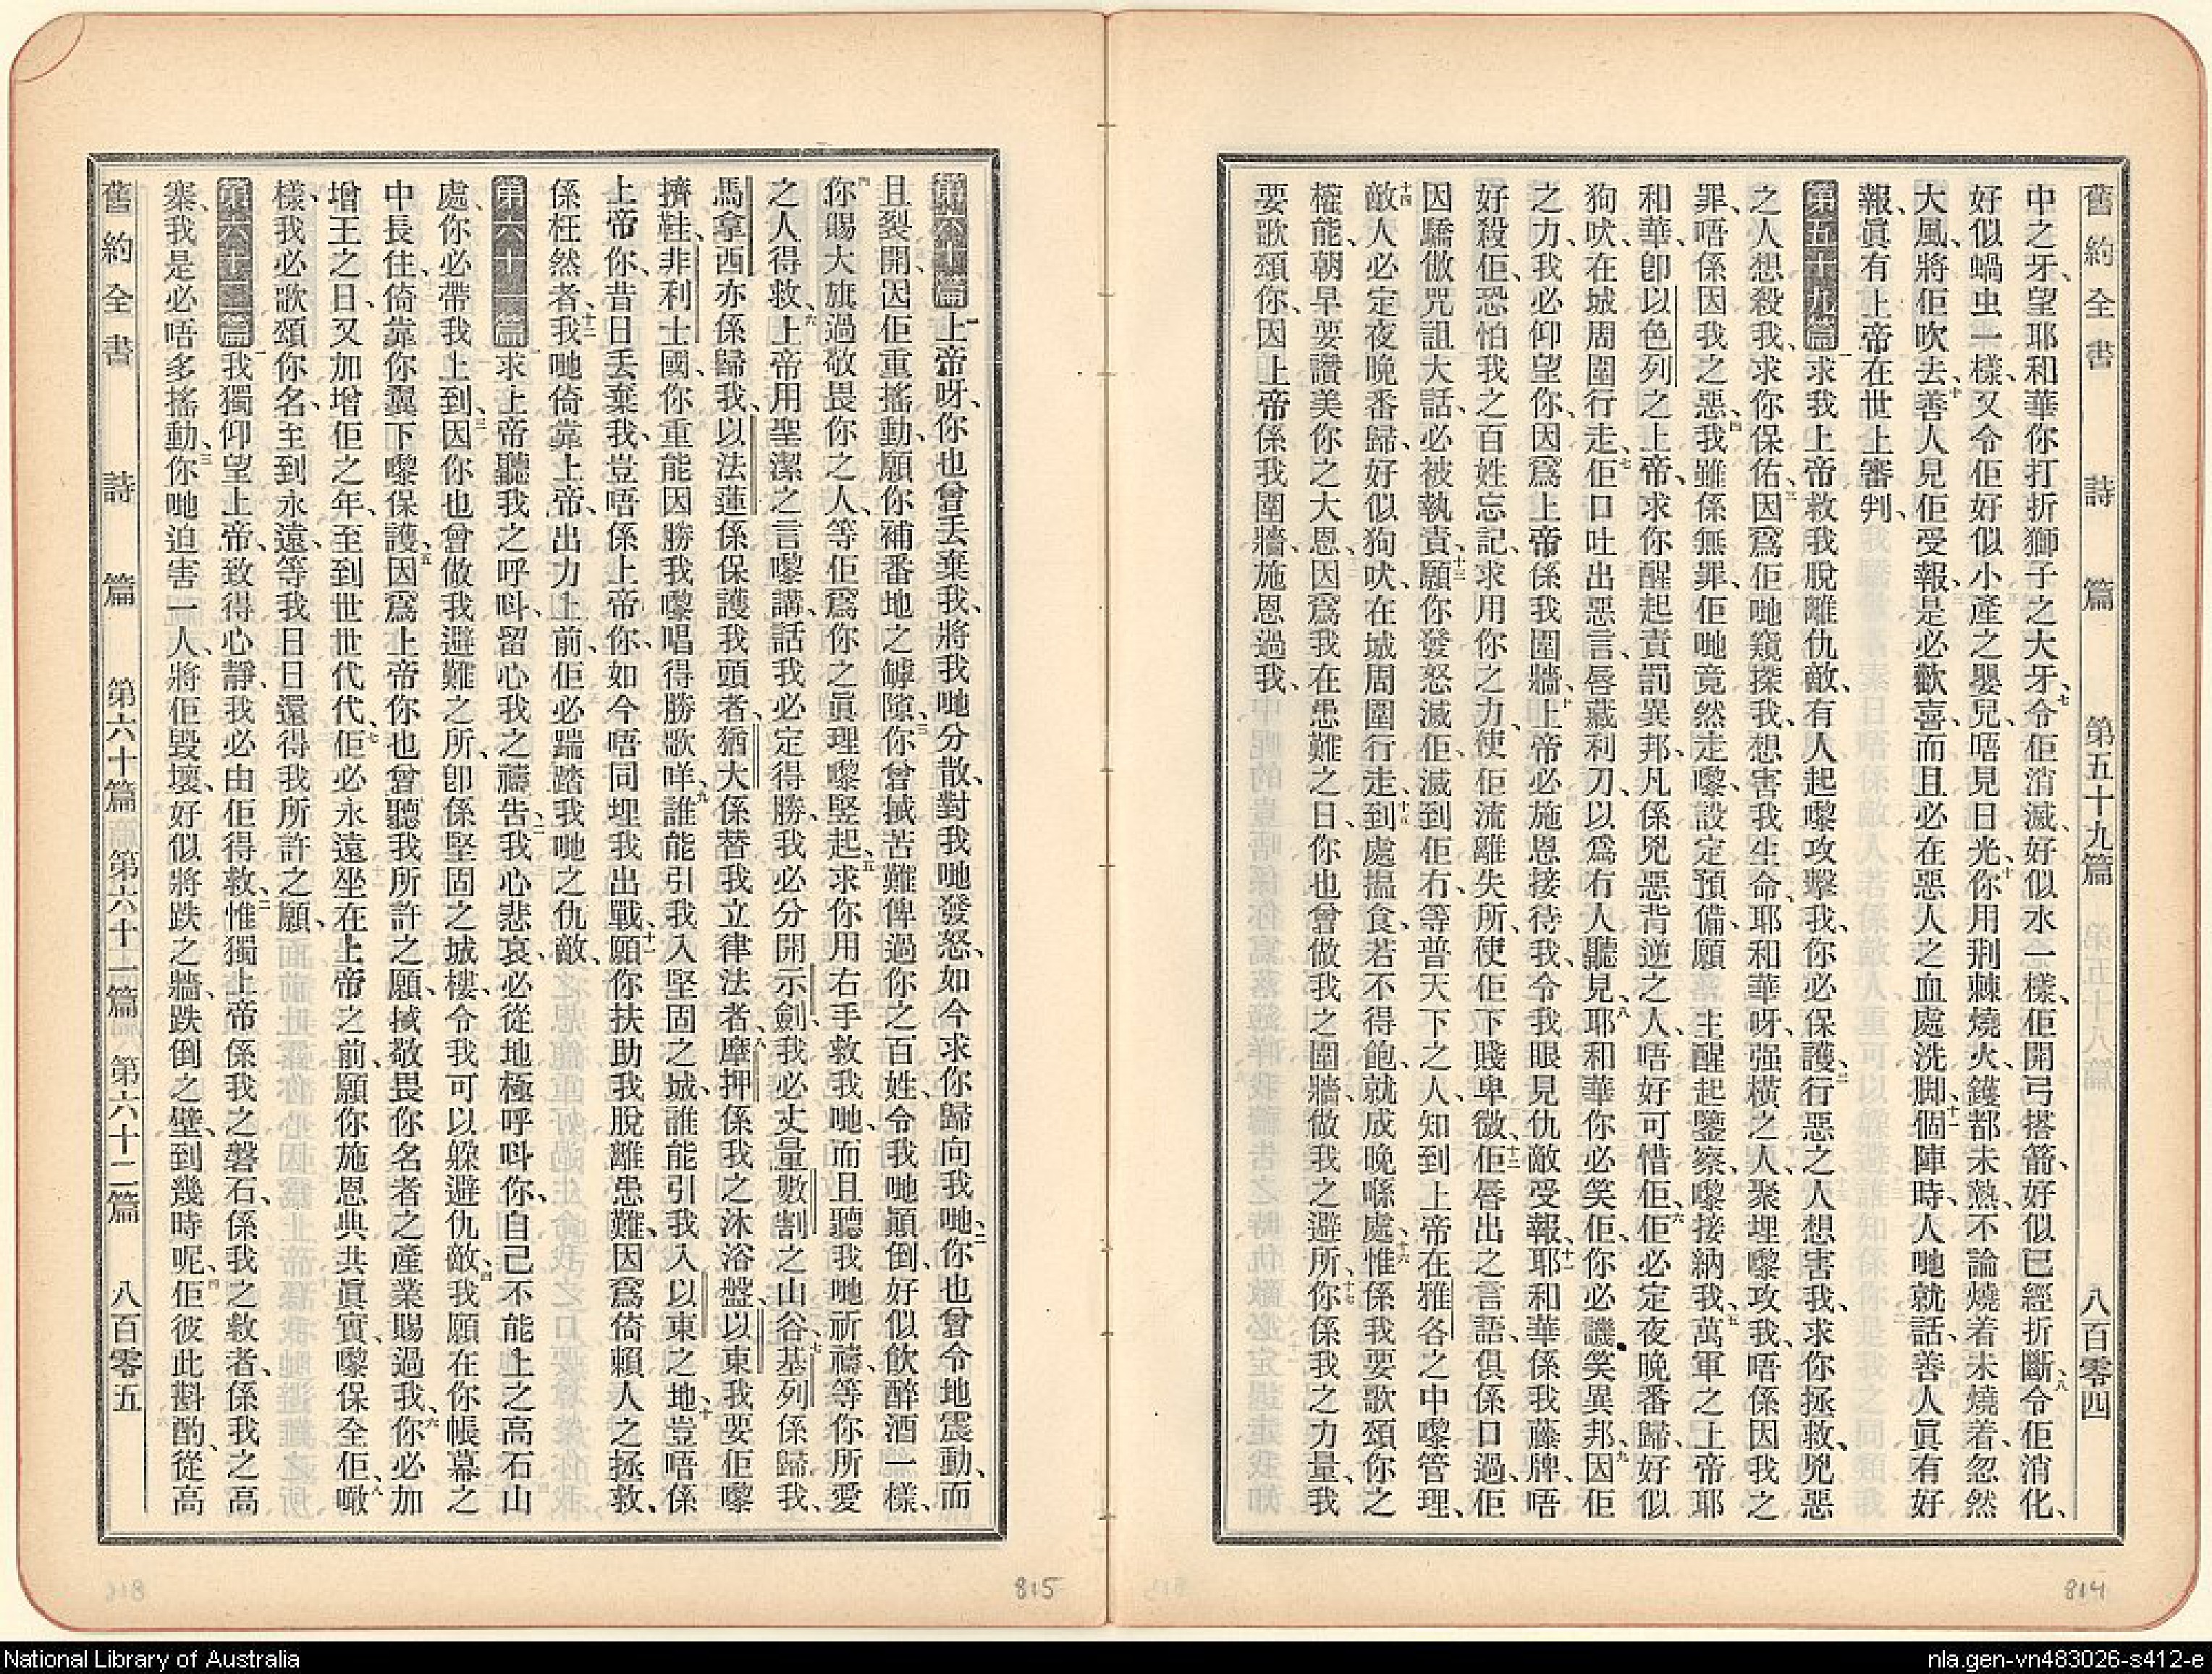 舊約全書 詩篇 第五十九篇 八百零四
中之牙、望耶和華你打折獅子之大牙、七令佢消滅、好似水一樣、佢開弓搭箭、好似已經折斷、八令佢消化、
好似蝸虫一樣、又令佢好似小產之嬰兒、唔見日光、九你用荆棘燒火、鑊都未熱、不論燒着未燒着、忽然
大風、將佢吹去、十善人見佢受報、是必歡喜、而且必在惡人之血處洗脚、十一個陣時、人哋就話、善人眞有好
報、眞有上帝在世上審判、
第五十九篇 一求我上帝救我脫離仇敵、有人起嚟攻擊我、你必保護、二行惡之人想害我、求你拯救、兇惡
之人想殺我、求你保佑、三因爲佢哋窺探我、想害我生命、耶和華呀、强橫之人、聚埋嚟攻我、唔係因我之
罪、唔係因我之惡、四我雖係無罪、佢哋竟然走嚟、設定預備、願 主醒起鑒察、嚟接納我、五萬軍之上帝耶
和華、卽以色列之上帝、求你醒起責罰異邦、凡係兇惡背逆之人、唔好可惜佢、六佢必定夜晚番歸、好似
狗吠、在城周圍行走、七佢口吐出惡言、唇藏利刀、以爲冇人聽見、八耶和華你必笑佢、你必譏笑異邦、九因佢
之力、我必仰望你、因爲上帝係我圍牆、十上帝必施恩接待我、令我眼見仇敵受報、十一耶和華係我藤牌、唔
好殺佢、恐怕我之百姓忘記、求用你之力、使佢流離失所、使佢下賤卑微、十二佢唇出之言語、俱係口過、佢
因驕傲咒詛大話、必被執責、十三願你發怒滅佢、滅到佢冇、等普天下之人、知到上帝在雅各之中嚟管理、
十四敵人必定夜晚番歸、好似狗吠、在城周圍行走、十五到處搵食、若不得飽、就成晚喺處、十六惟係我要歌頌你之
權能、朝早要讚美你之大恩、因爲我在患難之日、你也曾做我之圍牆、做我之避所、十七你係我之力量、我
要歌頌你、因上帝係我圍牆、施恩過我、
第六十篇 一上帝呀、你也曾丟棄我、將我哋分散、對我哋發怒、如今求你歸向我哋、二你也曾令地震動、而
且裂開、因佢重搖動、願你補番地之罅隙、三你曾揻苦難俾過你之百姓、令我哋顚倒、好似飲醉酒一樣、
四你賜大旗過敬畏你之人、等佢爲你之眞理嚟竪起、五求你用右手救我哋、而且聽我哋祈禱、等你所愛
之人得救、六上帝用聖潔之言嚟講話、我必定得勝、我必分開示劍、我必丈量數割之山谷、七基列係歸我、
馬拿西亦係歸我、以法蓮係保護我頭者、猶大係替我立律法者、八摩押係我之沐浴盤、以東我要佢嚟
擠鞋、非利士國、你重能因勝我嚟唱得勝歌咩、九誰能引我入堅固之城、誰能引我入以東之地、十豈唔係
上帝你、昔日丟棄我、豈唔係上帝你、如今唔同埋我出戰、十一願你扶助我脫離患難、因爲倚賴人之拯救、
係枉然者、十二我哋倚靠上帝、出力上前、佢必踹踏我哋之仇敵、
第六十一篇 一求上帝聽我之呼呌、留心我之禱吿、二我心悲哀、必從地極呼呌你、自己不能上之高石山
處、你必帶我上到、三因你也曾做我避難之所、卽係堅固之城樓、令我可以躱避仇敵、四我願在你帳幕之
中長住、倚靠你翼下嚟保護、五因爲上帝你也曾聽我所許之願、揻敬畏你名者之產業賜過我、六你必加
增王之日、又加增佢之年、至到世世代代、七佢必永遠坐在上帝之前、願你施恩典共眞實嚟保全佢、八噉
樣、我必歌頌你名、至到永遠、等我日日還得我所許之願、
第六十二篇 一我獨仰望上帝、致得心靜、我必由佢得救、二惟獨上帝係我之磐石、係我之救者、係我之高
寨、我是必唔多搖動、三你哋迫害一人、將佢毀壞、好似將跌之牆、跌倒之壁、到幾時呢、四佢彼此斟酌、從高
舊約全書 詩篇 第六十篇 第六十一篇 第六十二篇 八百零五
815
814
National Library of Australia
nla.gen-vn483026-s412-e